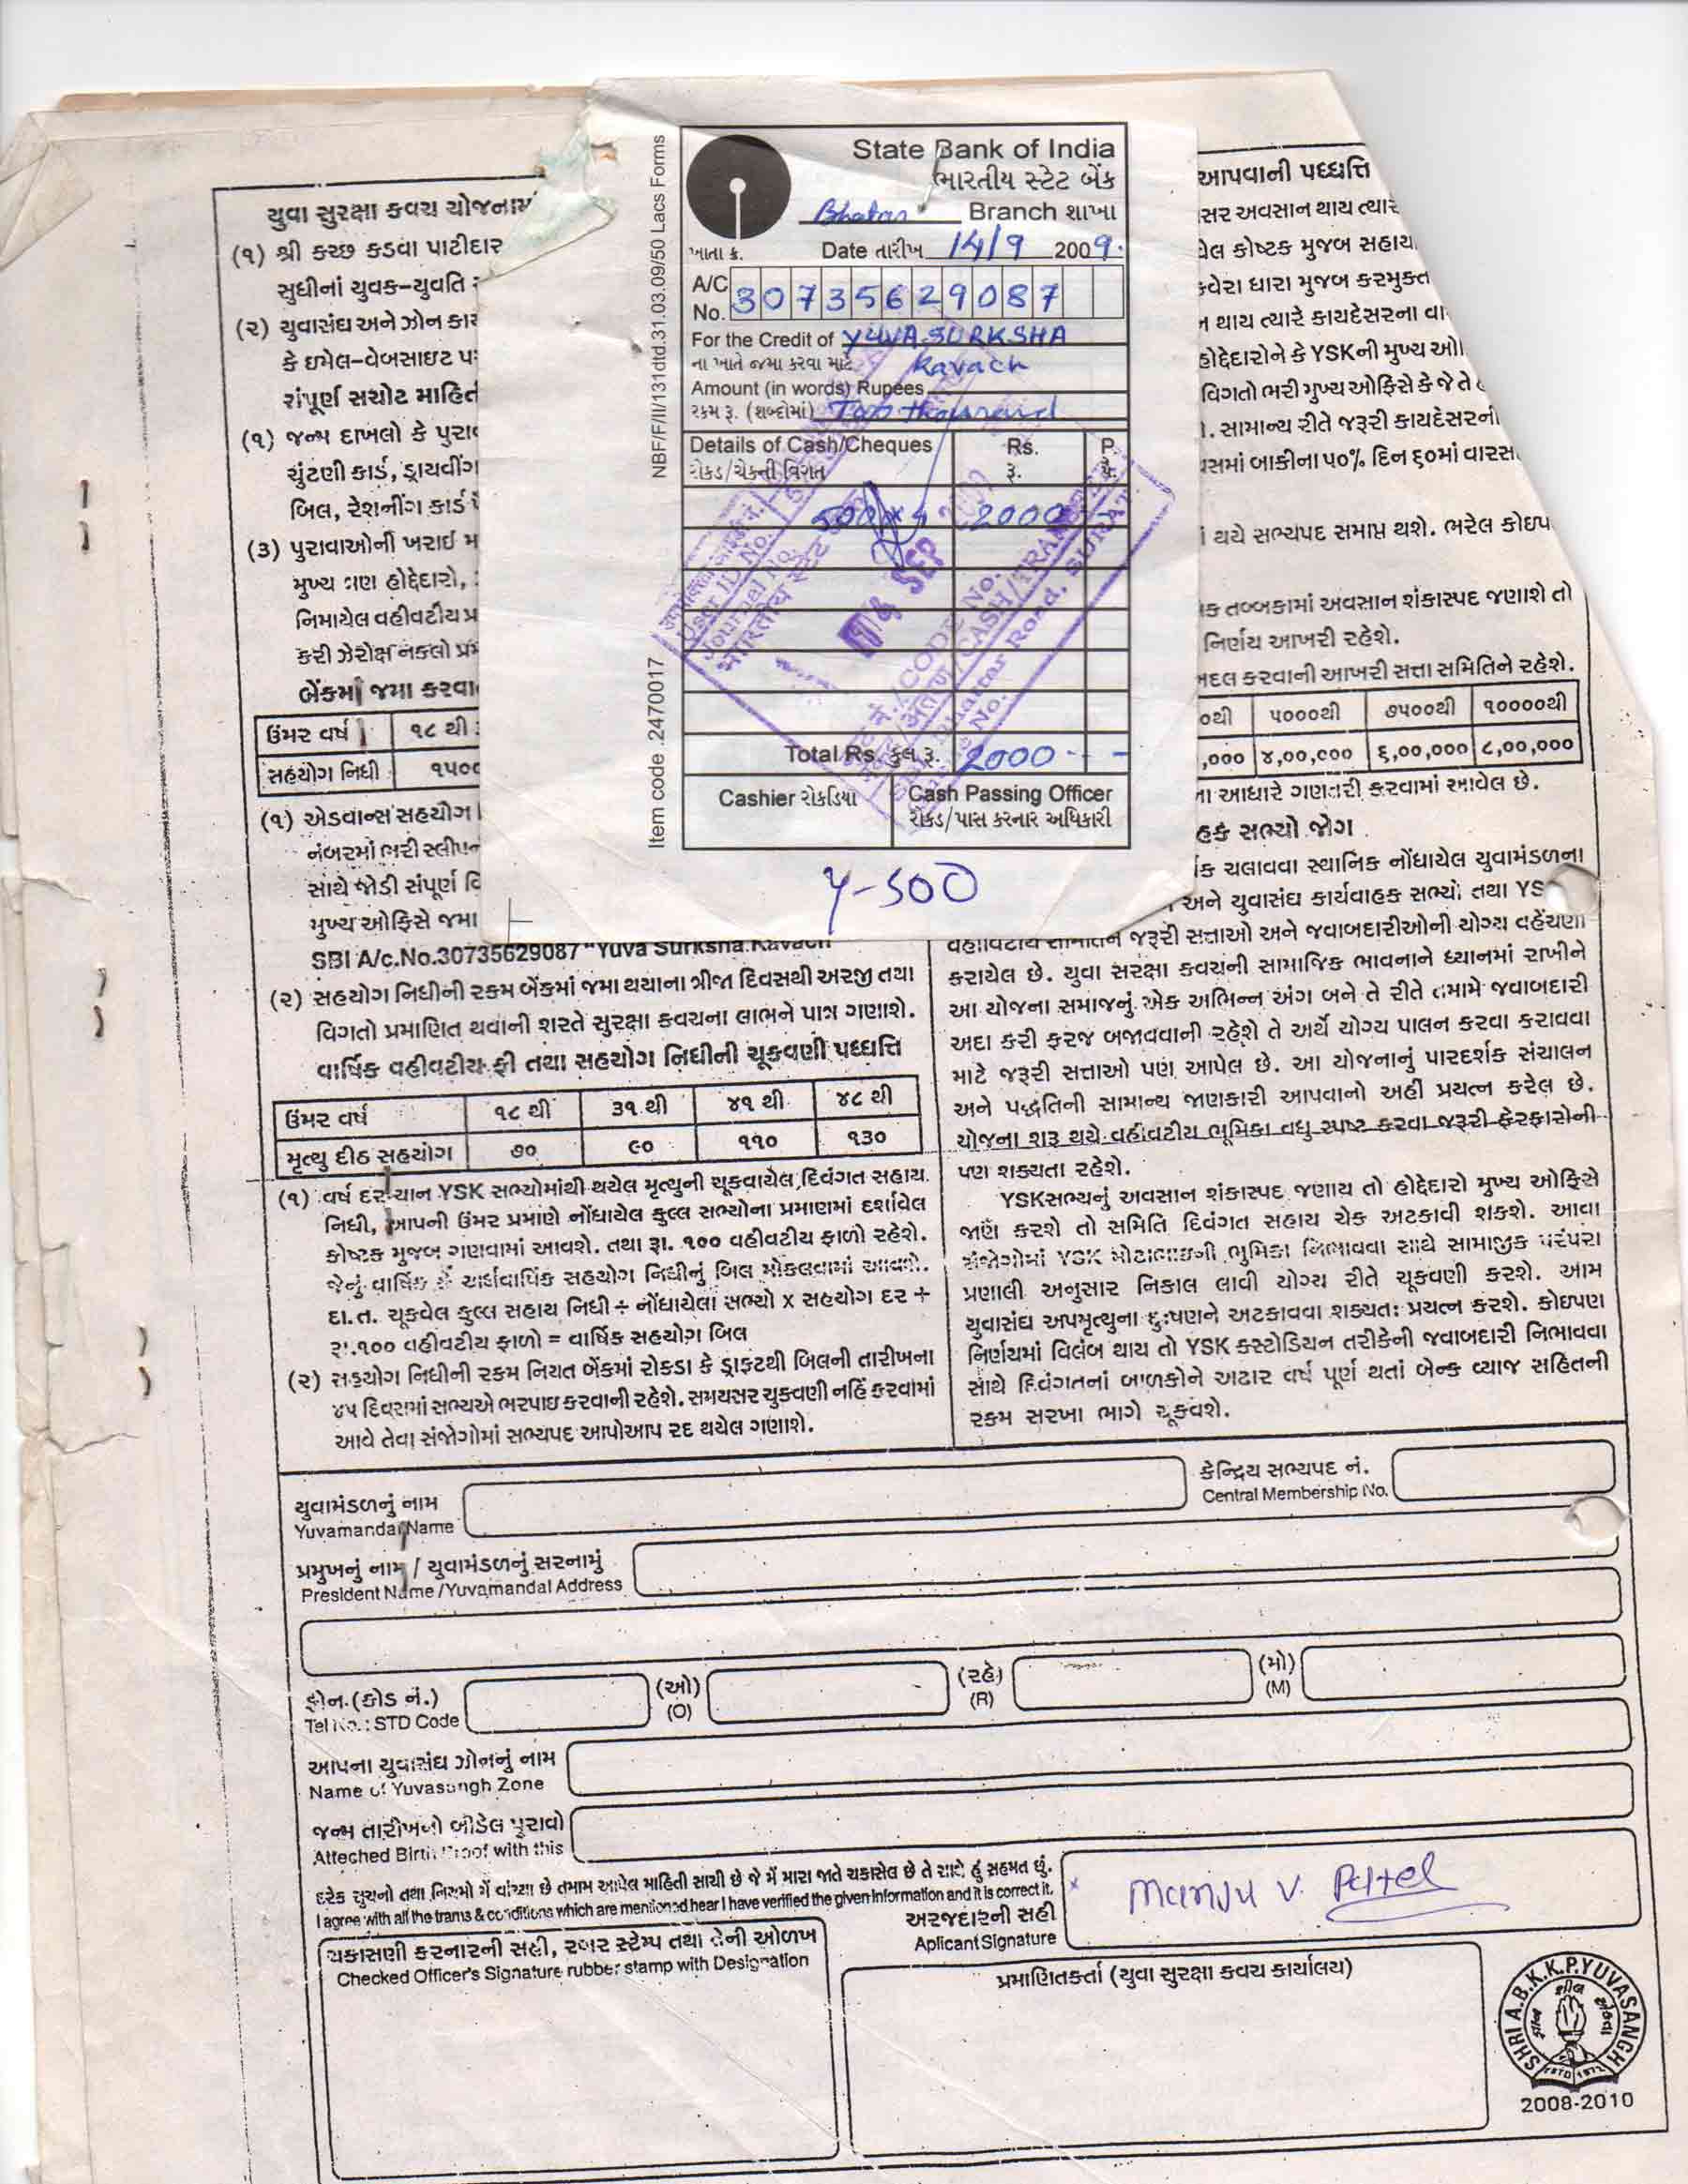 State Bank of India
ભારતીય સ્ટેટ બેંક
Bhatar Branch શાખા
ખાતા ક્ર. Date તારીખ 14/9 2009.
A/C No. 30735629087
For the Credit of YUVA SURKSHA
ના ખાતે જમા કરવા માટે Kavach
Amount (in words) Rupees
રકમ રૂ. (શબ્દોમાં) Two thousand
Details of Cash/Cheques Rs. P.
રોકડ/ચેકની વિગત રૂ. પૈ.
500 x 4 2000 -
Total Rs. કુલ રૂ. 2000 - -
Cashier રોકડિયા Cash Passing Officer
રોકડ/પાસ કરનાર અધિકારી
Y-500
NBF/F/II/131dtd.31.03.09/50 Lacs Forms
Item code .2470017
User ID No.
Journal No.
14 SEP
યુવા સુરક્ષા કવચ યોજનામાં
(૧) શ્રી કચ્છ કડવા પાટીદાર
સુધીનાં યુવક-યુવતિ
(૨) યુવાસંઘ અને ઝોન કાર
કે ઇમેલ-વેબસાઇટ પ
સંપૂર્ણ સચોટ માહિત
(૧) જન્મ દાખલો કે પુરા
ચુંટણી કાર્ડ, ડ્રાયવીંગ
બિલ, રેશનીંગ કાર્ડ
(૩) પુરાવાઓની ખરાઈ મ
મુખ્ય ત્રણ હોદ્દેદારો,
નિમાયેલ વહીવટીય પ્ર
કરી ઝેરોક્ષ નકલો પ્રમ
બેંકમાં જમા કરવા
ઉંમર વર્ષ ૧૮ થી
સહયોગ નિધી ૧૫૦૦
(૧) એડવાન્સ સહયોગ
નંબરમાં ભરી સ્લીપન
સાથે જોડી સંપૂર્ણ વિ
મુખ્ય ઓફિસે જમા
SBI A/c.No.30735629087 "Yuva Surksha.Kavach
(૨) સહયોગ નિધીની રકમ બેંકમાં જમા થયાના ત્રીજા દિવસથી અરજી તથા
વિગતો પ્રમાણિત થવાની શરતે સુરક્ષા કવચના લાભને પાત્ર ગણાશે.
વાર્ષિક વહીવટીય ફી તથા સહયોગ નિધીની ચૂકવણી પધ્ધતિ
ઉંમર વર્ષ ૧૮ થી ૩૧ થી ૪૧ થી ૪૮ થી
મૃત્યુ દીઠ સહયોગ ૭૦ ૯૦ ૧૧૦ ૧૩૦
(૧) વર્ષ દરમ્યાન YSK સભ્યોમાંથી થયેલ મૃત્યુની ચૂકવાયેલ દિવંગત સહાય
નિધી, આપની ઉંમર પ્રમાણે નોંધાયેલ કુલ્લ સભ્યોના પ્રમાણમાં દર્શાવેલ
કોષ્ટક મુજબ ગણવામાં આવશે. તથા રૂા. ૧૦૦ વહીવટીય ફાળો રહેશે.
જેનું વાર્ષિક કે અર્ધવાર્ષિક સહયોગ નિધીનું બિલ મોકલવામાં આવશે.
દા.ત. ચૂકવેલ કુલ્લ સહાય નિધી ÷ નોંધાયેલા સભ્યો x સહયોગ દર ÷
રૂા.૧૦૦ વહીવટીય ફાળો = વાર્ષિક સહયોગ બિલ
(૨) સહયોગ નિધીની રકમ નિયત બેંકમાં રોકડા કે ડ્રાફ્ટથી બિલની તારીખના
૪૫ દિવસમાં સભ્યએ ભરપાઇ કરવાની રહેશે. સમયસર ચુકવણી નહિં કરવામાં
આવે તેવા સંજોગોમાં સભ્યપદ આપોઆપ રદ થયેલ ગણાશે.
આપવાની પધ્ધતિ
સર અવસાન થાય ત્યારે
વેલ કોષ્ટક મુજબ સહાય
ક્વેરા ધારા મુજબ કરમુક્ત
ન થાય ત્યારે કાયદેસરના વા
હોદ્દેદારોને કે YSKની મુખ્ય ઓ
વિગતો ભરી મુખ્ય ઓફિસે કે જે તે
. સામાન્ય રીતે જરૂરી કાયદેસરની
સમાં બાકીના ૫૦% દિન ૬૦માં વારસ
થયે સભ્યપદ સમાપ્ત થશે. ભરેલ કોઇપ
ક તબ્બકામાં અવસાન શંકાસ્પદ જણાશે તો
નિર્ણય આખરી રહેશે.
બદલ કરવાની આખરી સત્તા સમિતિને રહેશે.
૦થી ૫૦૦૦થી ૭૫૦૦થી ૧૦૦૦૦થી
,૦૦૦ ૪,૦૦,૦૦૦ ૬,૦૦,૦૦૦ ૮,૦૦,૦૦૦
ના આધારે ગણતરી કરવામાં આવેલ છે.
હક સભ્યો જોગ
ક ચલાવવા સ્થાનિક નોંધાયેલ યુવામંડળના
અને યુવાસંઘ કાર્યવાહક સભ્યો તથા YS
વહીવટીય સમિતિને જરૂરી સત્તાઓ અને જવાબદારીઓની યોગ્ય વહેંચણી
કરાયેલ છે. યુવા સરક્ષા કવચની સામાજિક ભાવનાને ધ્યાનમાં રાખીને
આ યોજના સમાજનું એક અભિન્ન અંગ બને તે રીતે તમામે જવાબદારી
અદા કરી ફરજ બજાવવાની રહેશે તે અર્થે યોગ્ય પાલન કરવા કરાવવા
માટે જરૂરી સત્તાઓ પણ આપેલ છે. આ યોજનાનું પારદર્શક સંચાલન
અને પદ્ધતિની સામાન્ય જાણકારી આપવાનો અહીં પ્રયત્ન કરેલ છે.
યોજના શરૂ થયે વહીવટીય ભૂમિકા વધુ સ્પષ્ટ કરવા જરૂરી ફેરફારોની
પણ શક્યતા રહેશે.
YSKસભ્યનું અવસાન શંકાસ્પદ જણાય તો હોદ્દેદારો મુખ્ય ઓફિસે
જાણ કરશે તો સમિતિ દિવંગત સહાય ચેક અટકાવી શકશે. આવા
સંજોગોમાં YSK મોટાભાઇની ભુમિકા નિભાવવા સાથે સામાજીક પરંપરા
પ્રણાલી અનુસાર નિકાલ લાવી યોગ્ય રીતે ચૂકવણી કરશે. આમ
યુવાસંઘ અપમૃત્યુના દુ:ષણને અટકાવવા શક્યત: પ્રયત્ન કરશે. કોઇપણ
નિર્ણયમાં વિલંબ થાય તો YSK કસ્ટોડિયન તરીકેની જવાબદારી નિભાવવા
સાથે દિવંગતનાં બાળકોને અઢાર વર્ષ પૂર્ણ થતાં બેન્ક વ્યાજ સહિતની
રકમ સરખા ભાગે ચૂકવશે.
યુવામંડળનું નામ કેન્દ્રિય સભ્યપદ નં.
Yuvamandal Name Central Membership No.
પ્રમુખનું નામ / યુવામંડળનું સરનામું
President Name /Yuvamandal Address
ફોન.(કોડ નં.) (ઓ) (રહે) (મો)
Tel No.: STD Code (O) (R) (M)
આપના યુવાસંઘ ઝોનનું નામ
Name of Yuvasangh Zone
જન્મ તારીખનો બીડેલ પૂરાવો
Atteched Birth Proof with this
દરેક સુચનો તથા નિયમો મેં વાંચ્યા છે તમામ આપેલ માહિતી સાચી છે જે મેં મારા જાતે ચકાસેલ છે તે સાથે હું સહમત છું.
I agree with all the trams & conditions which are mentioned hear I have verified the given Information and it is correct it.
અરજદારની સહી
Aplicant Signature
Manju V. Patel
ચકાસણી કરનારની સહી, રબર સ્ટેમ્પ તથા તેની ઓળખ
Checked Officer's Signature rubber stamp with Designation
પ્રમાણિતકર્તા (યુવા સુરક્ષા કવચ કાર્યાલય)
SHRI A.B.K.K.P.YUVASANGH
2008-2010